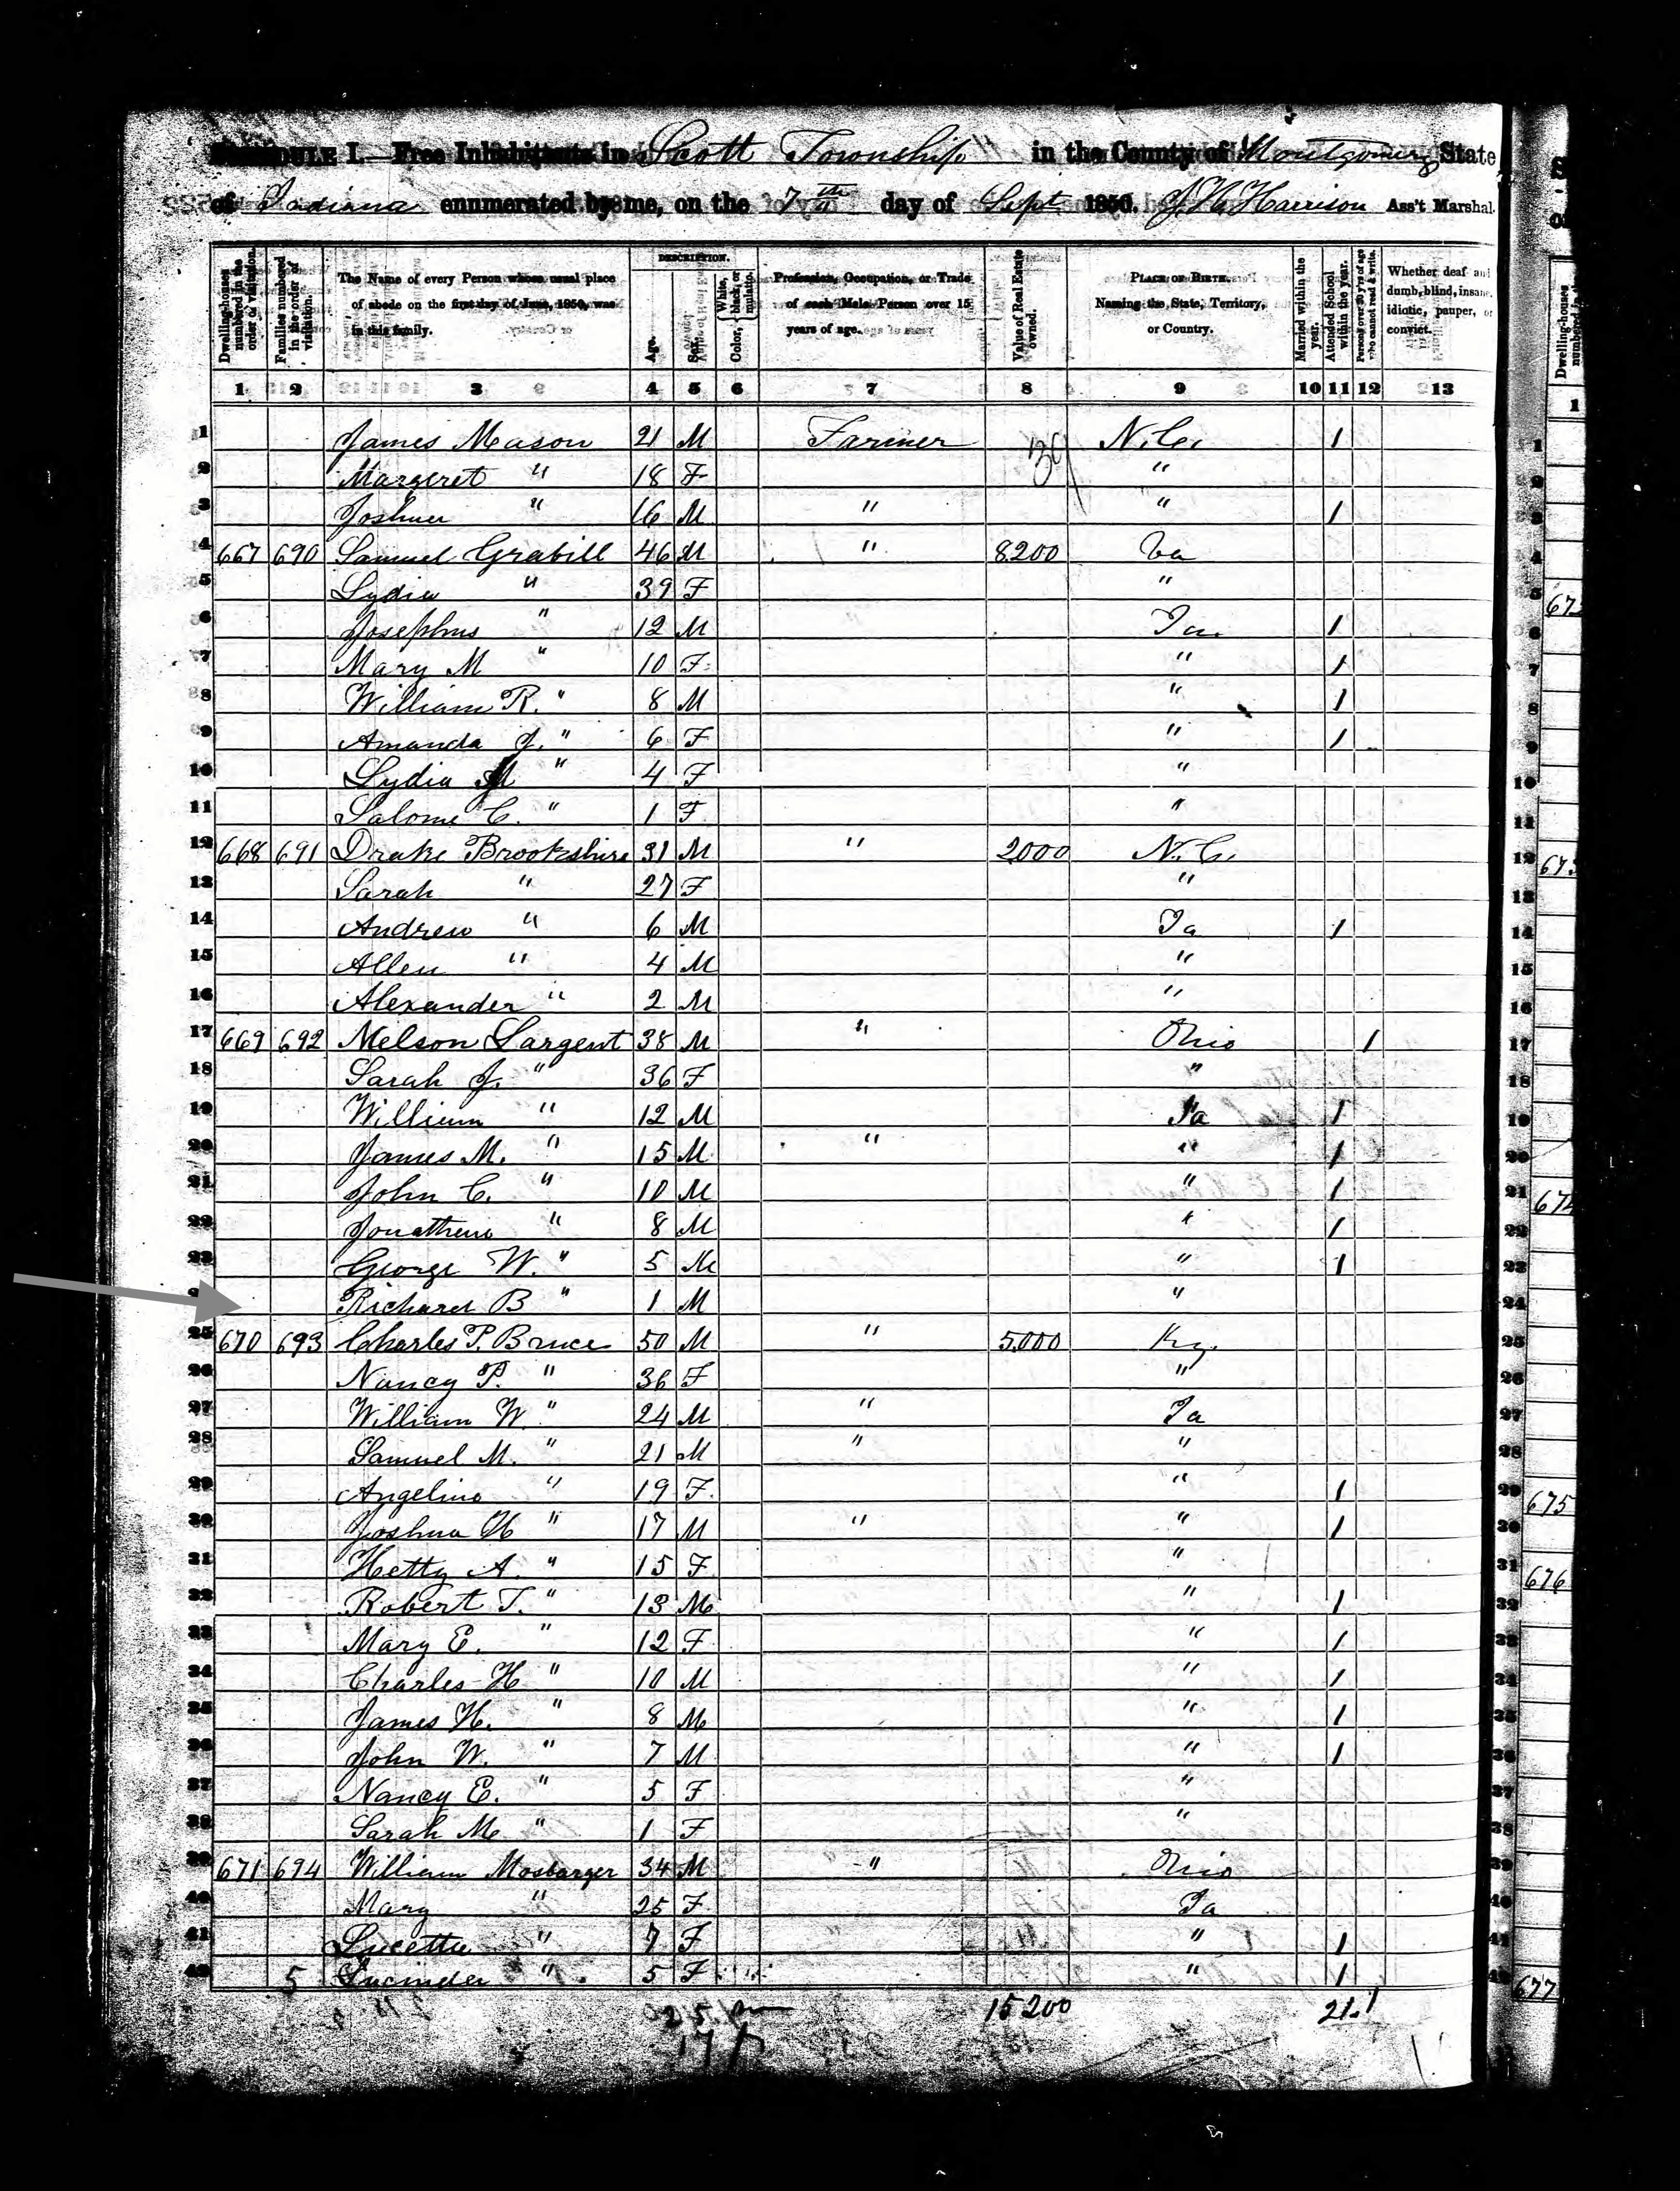 SCHEDULE I.—Free Inhabitants in Scott Township in the County of Montgomery State
of Indiana ennumerated by me, on the 7th day of Sept 1850. Harrison Ass't Marshal.
Dwelling-houses numbered in the order of visitation.
Families numbered in the order of visitation.
The Name of every Person whose usual place of abode on the first day of June, 1850, was in this family.
DESCRIPTION.
Age.
Sex.
Color, White, black, or mulatto.
Profession, Occupation, or Trade of each Male Person over 15 years of age.
Value of Real Estate owned.
PLACE OF BIRTH. Naming the State, Territory, or Country.
Married within the year.
Attended School within the year.
Persons over 20 y'rs of age who cannot read & write.
Whether deaf and dumb, blind, insane, idiotic, pauper, or convict.
1 2 3 4 5 6 7 8 9 10 11 12 13
1 James Mason 21 M Farmer N.C. 1
2 Margeret " 18 F "
3 Joshuer " 16 M " " 1
4 667 690 Samuel Grabill 46 M " 8200 Va
5 Lydia " 39 F "
6 Josephus " 12 M Ia. 1
7 Mary M " 10 F " 1
8 William R. " 8 M " 1
9 Amanda J. " 6 F " 1
10 Lydia " 4 F "
11 Salome C. " 1 F "
12 668 691 Drake Brookshire 31 M " 2000 N.C.
13 Sarah " 27 F "
14 Andrew " 6 M Ia 1
15 Allen " 4 M "
16 Alexander " 2 M "
17 669 692 Nelson Sargent 38 M " Ohio 1
18 Sarah J. " 36 F "
19 William " 12 M Ia 1
20 James M. " 15 M " " 1
21 John C. " 10 M " 1
22 Jonathan " 8 M " 1
23 George W. " 5 M " 1
Richard B " 1 M "
25 670 693 Charles P. Bruce 50 M " 5,000 Ky.
26 Nancy P. " 36 F "
27 William W. " 24 M " Ia
28 Samuel M. " 21 M " "
29 Angeline " 19 F " 1
30 Joshua H " 17 M " " 1
31 Hetty A. " 15 F "
32 Robert T. " 13 M " 1
33 Mary E. " 12 F " 1
34 Charles H " 10 M " 1
35 James H. " 8 M " 1
36 John W. " 7 M " 1
37 Nancy E. " 5 F "
38 Sarah M " 1 F "
39 671 694 William Mosbarger 34 M " Ohio
40 Mary " 25 F Ia
41 Lucetta " 7 F " 1
42 5 Lucinder " 5 F " 1
25 15200 21 1
17
Dwelling-houses numbered in the
1
672
673
674
675
676
677